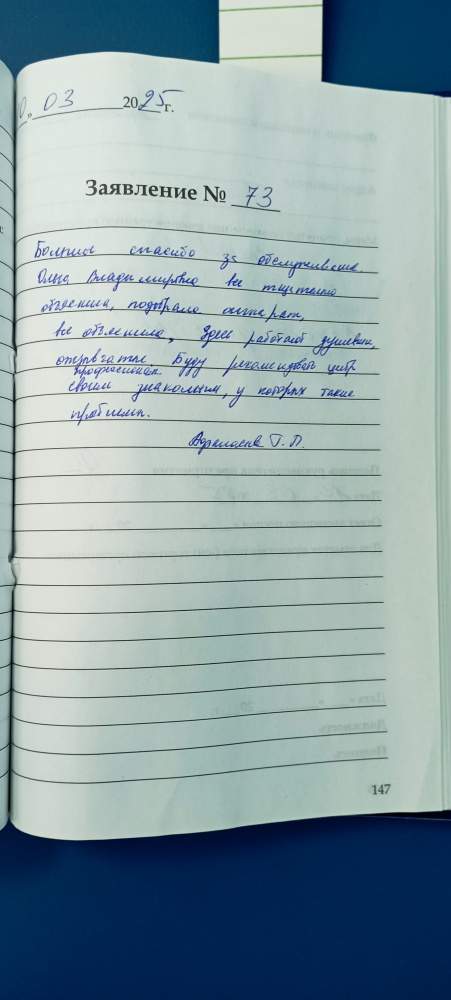 0. 03 2025 г.
Заявление № 73
Большое спасибо за обслуживание.
Ольга Владимировна все тщательно
объяснила, подобрала аппарат,
все объяснила. Здесь работают душевные,
отзывчатые
профессионалы. Буду рекомендовать центр
своим знакомым, у которых такие
проблемы.
Г. П.
147